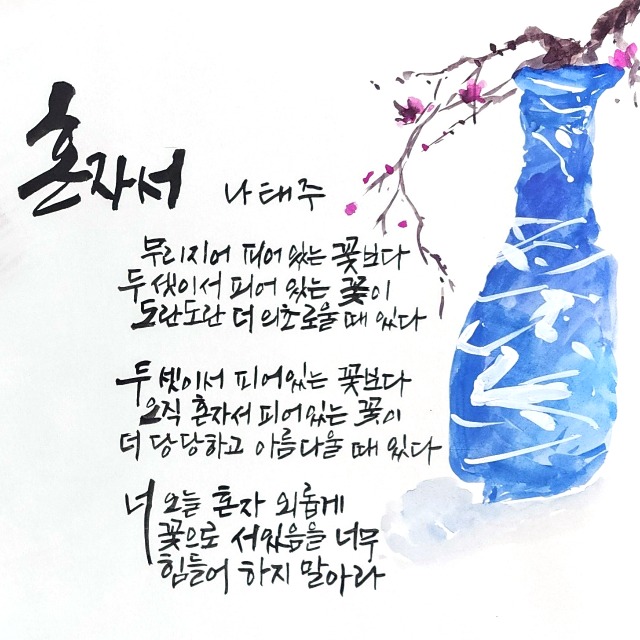 혼자서 나태주
무리지어 피어 있는 꽃보다
두셋이서 피어 있는 꽃이
도란도란 더 의초로울 때 있다
두셋이서 피어있는 꽃보다
오직 혼자서 피어있는 꽃이
더 당당하고 아름다울 때 있다
너 오늘 혼자 외롭게
꽃으로 서있음을 너무
힘들어 하지 말아라